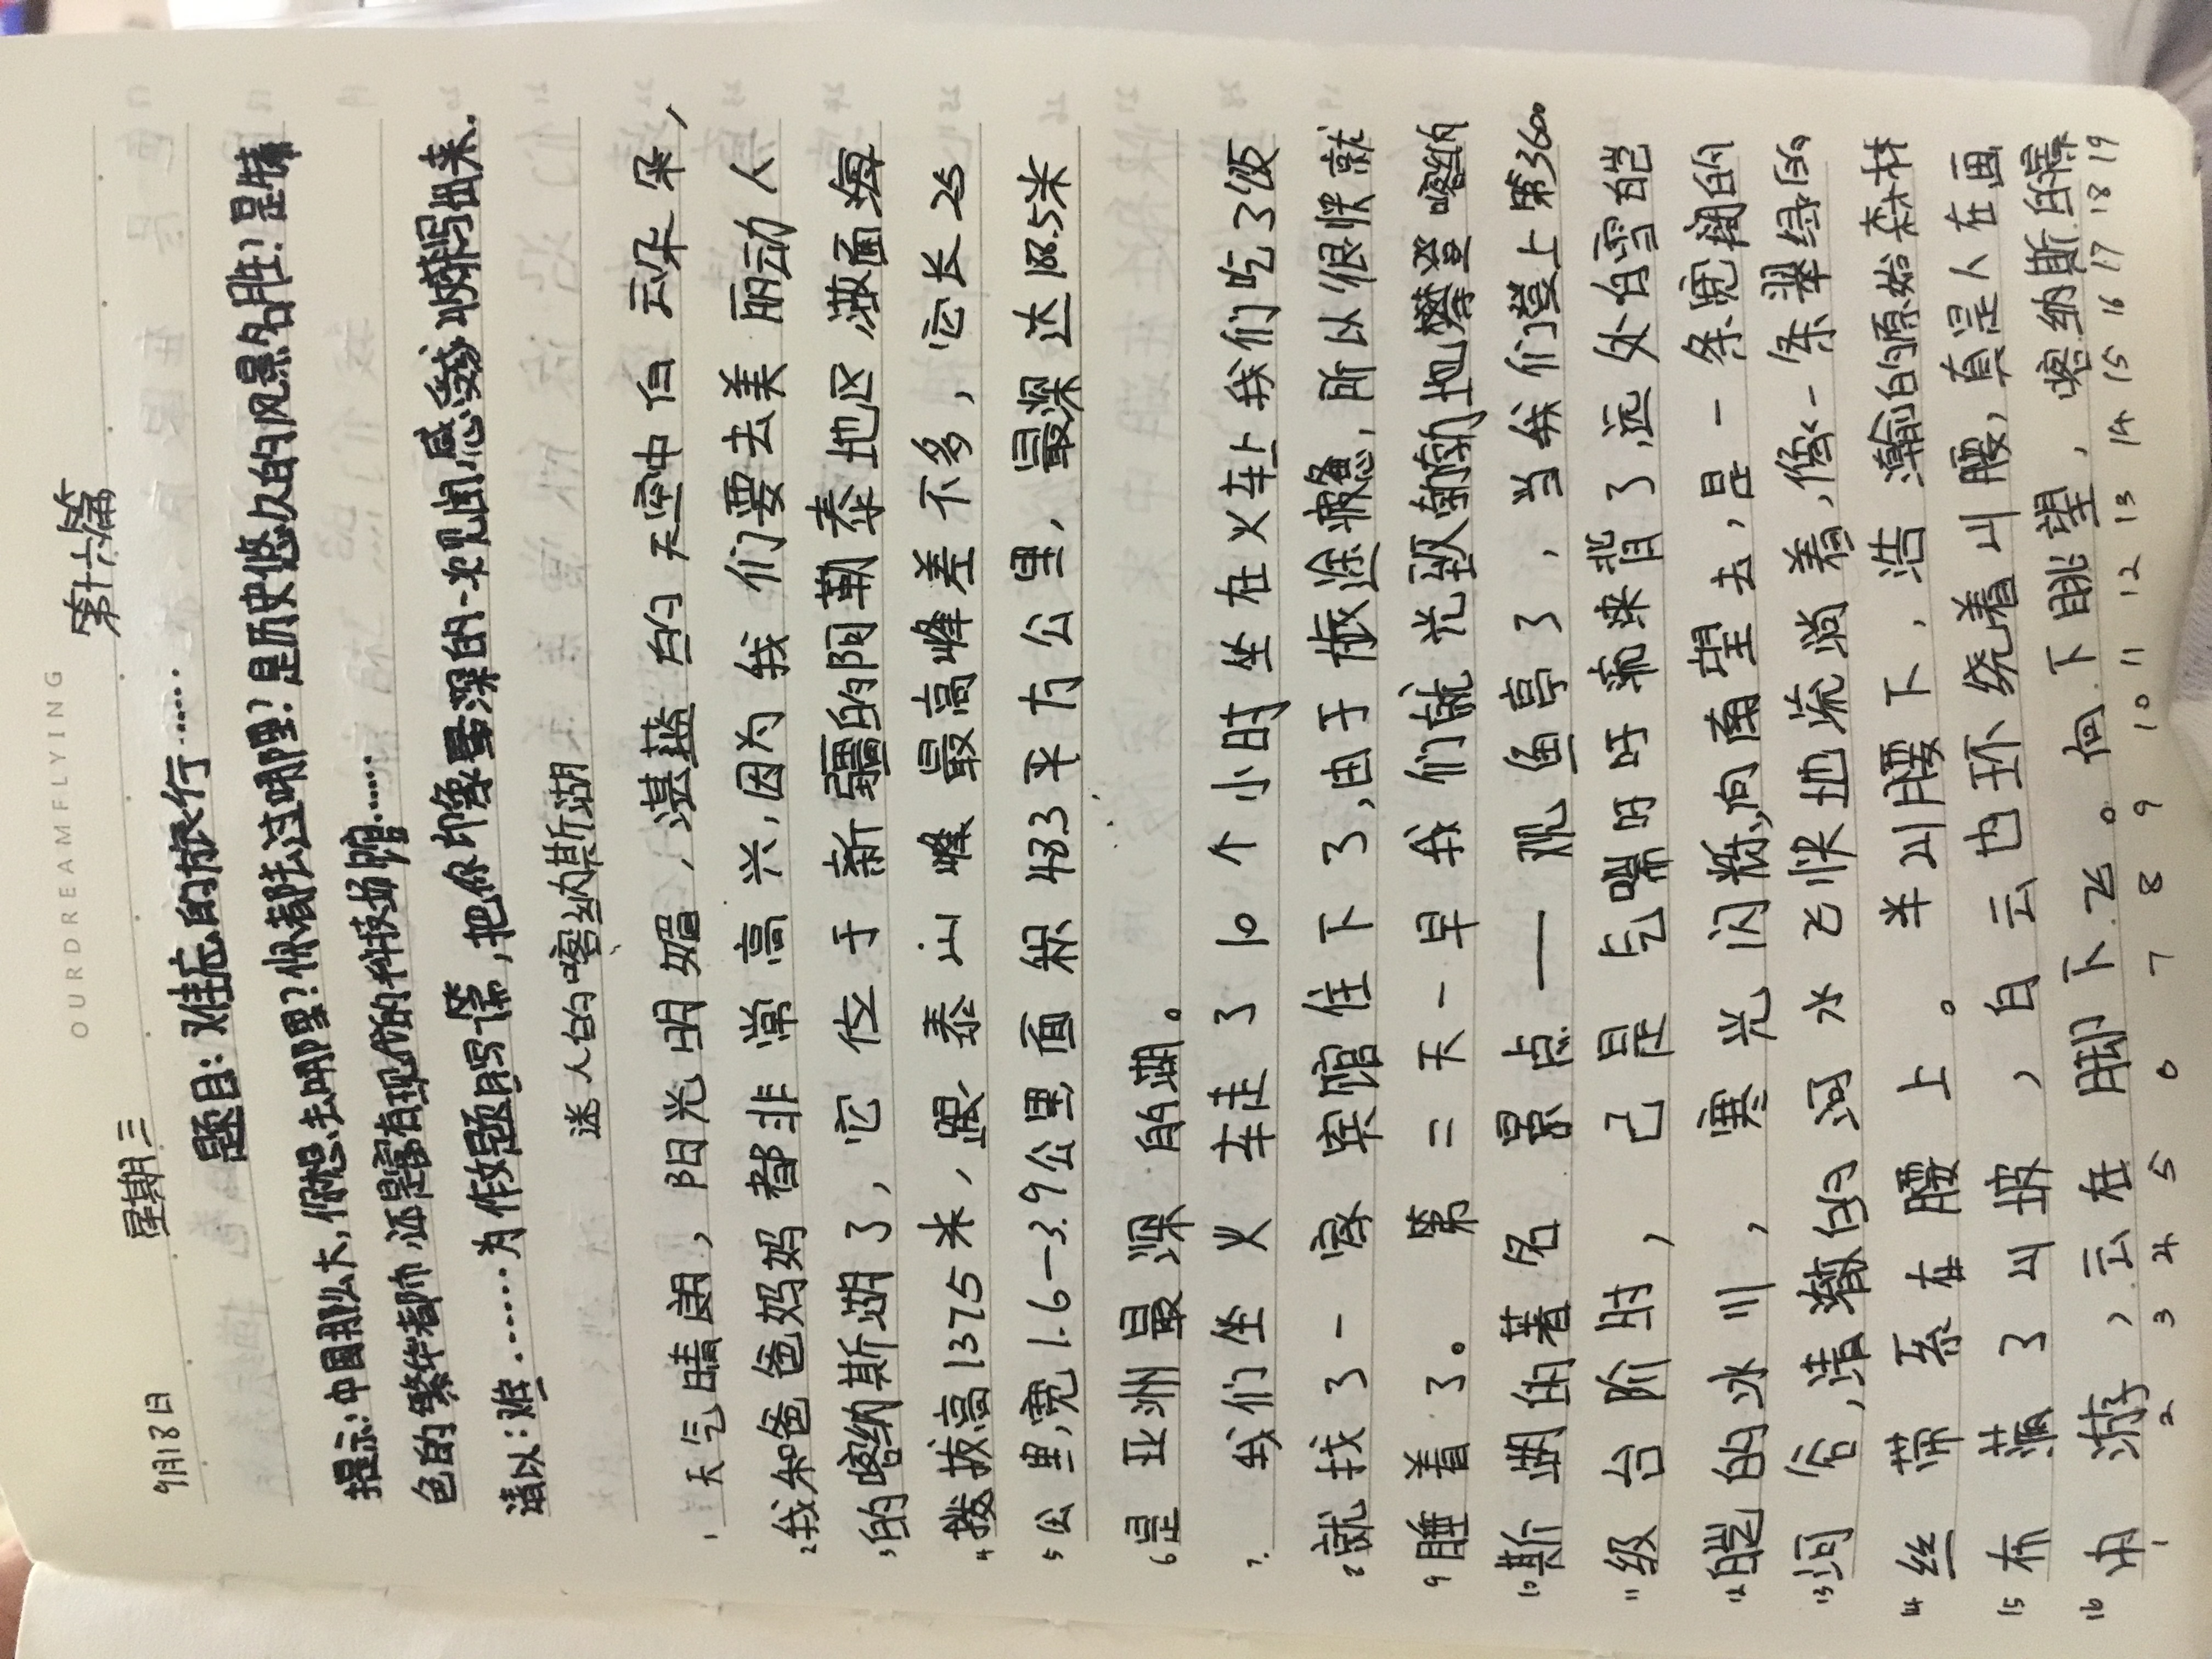 OURDREAMFLYING
9月18日 星期三 第十六篇
题目：难忘的旅行……
提示：中国那么大，你想去哪里？你都去过哪里？是历史悠久的风景名胜？是特
色的繁华都市，还是富有现代的科技场馆……
请以：难……为作文题目写一篇，把你印象最深的一次见闻，感受或收获写出来.
迷人的喀纳斯湖
1 天气晴朗，阳光明媚，湛蓝的天空中白云朵朵，
2 我和爸爸妈妈都非常高兴，因为我们要去美丽动人
3 的喀纳斯湖了，它位于新疆的阿勒泰地区，湖面海
4 拨拔高1375米，跟泰山峰最高峰差不多，它长25
5 公里，宽1.6—3.9公里面积483平方公里，最深达188.5米
6 是亚州最深的湖。
7. 我们坐火车走了10个小时坐在火车上我们吃了饭
8 就找了一家宾馆住下了，由于旅途疲惫，所以很快就
9 睡着了。第二天一早我们就兴致勃勃地攀登喀纳
10 斯湖的著名景点——观鱼亭了，当我们登上第360
11 级台阶时，已是气喘吁吁流来背了，远处白雪皑
12 皑的冰川，寒光闪烁，向南望去，是一条宽阔的
13 河谷，清澈的河水飞快地流淌着，像一条翠绿的
14 丝带系在腰上。半山腰下，浩瀚的原始森林
15 布满了山坡，白云也环绕着山腰，真是人在画
16 中游，云在脚下飞。向下眺望，喀纳斯的瀑
1 2 3 4 5 6 7 8 9 10 11 12 13 14 15 16 17 18 19